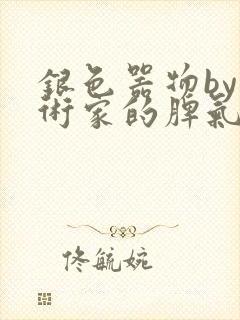 銀色器物by
術家的脾氣
佟毓婉